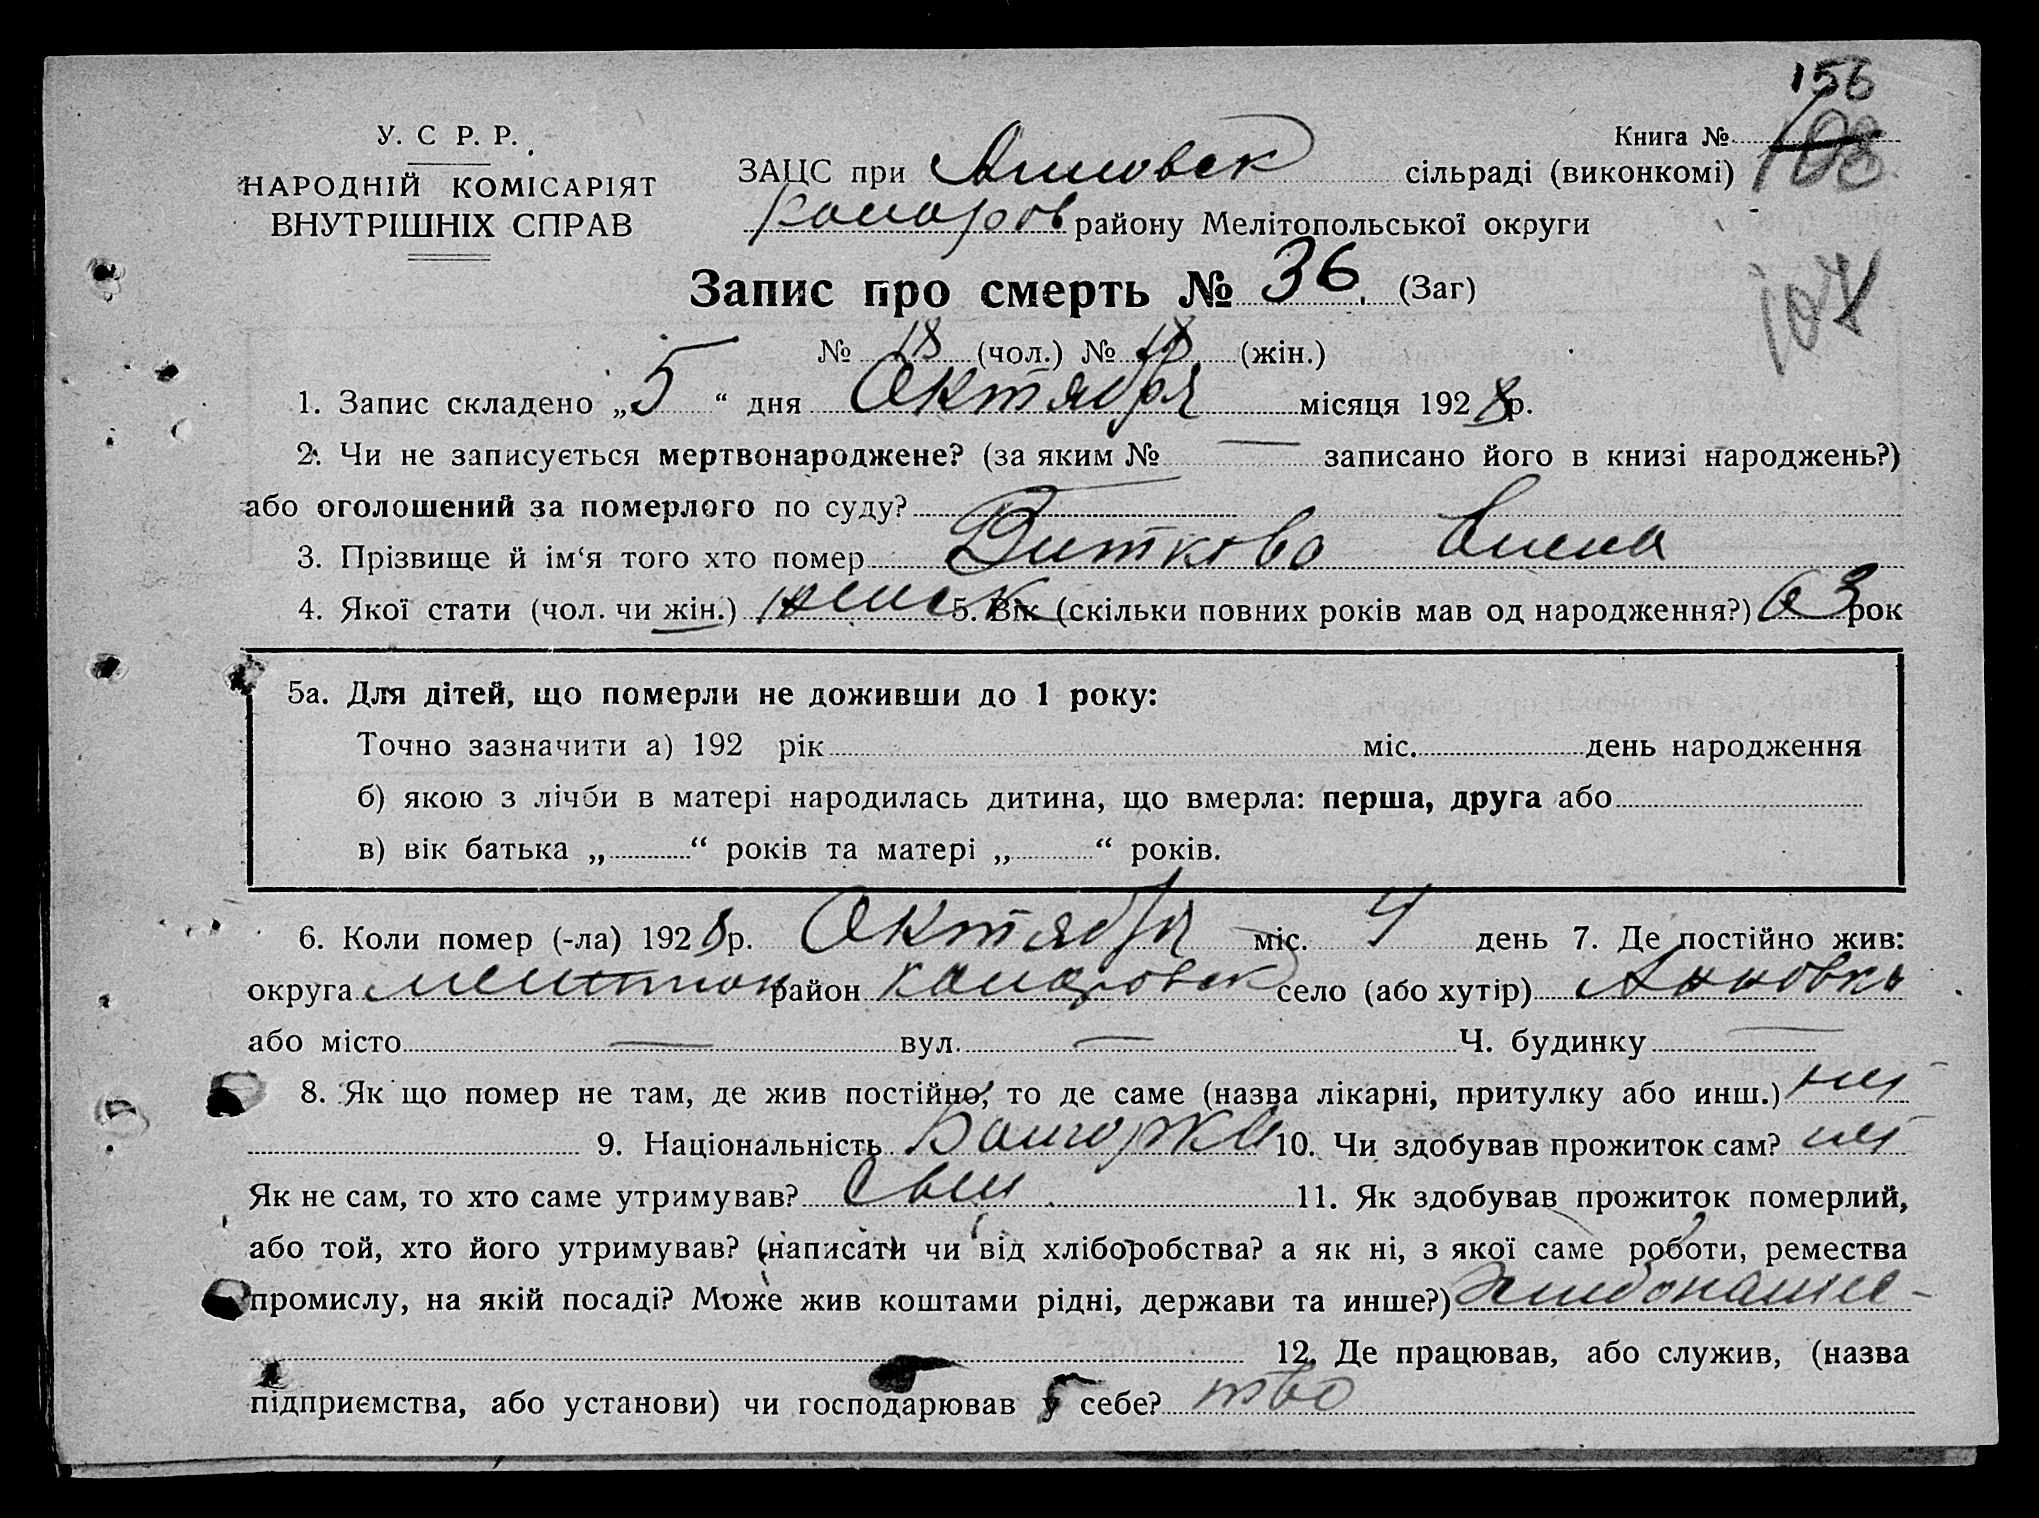 156
У. С. Р. Р.
Книга № 108
НАРОДНІЙ КОМІСАРІЯТ
ВНУТРІШНІХ СПРАВ
ЗАЦС при Анновск сільраді (виконкомі)
району Мелітопольської округи
107
Запис про смерть № 36. (Заг)
№ 18 (чол.) № 18 (жін.)
1. Запис складено „5“ дня Октября місяця 1928 р.
2. Чи не записується мертвонароджене? (за яким № — записано його в книзі народжень?)
або оголошений за померлого по суду? —
3. Прізвище й ім‘я того хто помер Диткова Елена
4. Якої стати (чол. чи жін.) женск 5. Вік (скільки повних років мав од народження?) 63 рок
5а. Для дітей, що померли не доживши до 1 року:
Точно зазначити а) 192 рік міс. день народження
б) якою з лічби в матері народилась дитина, що вмерла: перша, друга або
в) вік батька „ “ років та матері „ “ років.
6. Коли помер (-ла) 1928 р. Октября міс. 4 день 7. Де постійно жив:
округа район село (або хутір) Анновка
або місто — вул. — Ч. будинку —
8. Як що помер не там, де жив постійно, то де саме (назва лікарні, притулку або инш.) нет
9. Національність Болгарка 10. Чи здобував прожиток сам? нет
Як не сам, то хто саме утримував? Сын 11. Як здобував прожиток померлий,
або той, хто його утримував? (написати чи від хліборобства? а як ні, з якої саме роботи, ремества
промислу, на якій посаді? Може жив коштами рідні, держави та инше?) хлебопаше-
12. Де працював, або служив, (назва
підприємства, або установи) чи господарював у себе? тво